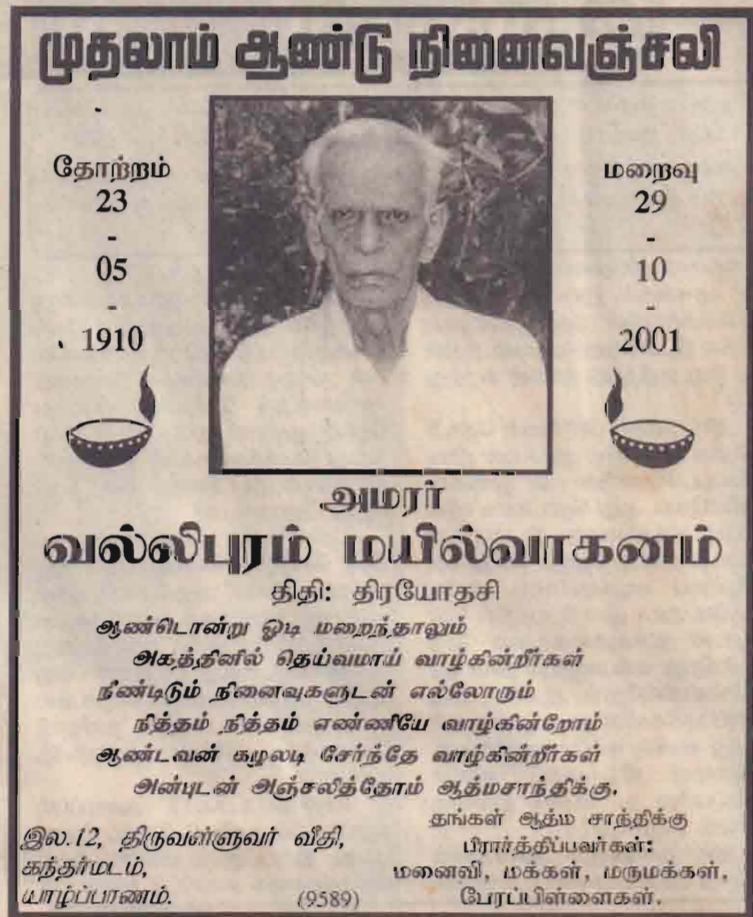 முதலாம் ஆண்டு நினைவஞ்சலி
தோற்றம்
23
-
05
-
1910
மறைவு
29
-
10
-
2001
அமரர்
வல்லிபுரம் மயில்வாகனம்
திதி: திரயோதசி
ஆண்டொன்று ஓடி மறைந்தாலும்
அகத்தினில் தெய்வமாய் வாழ்கின்றீர்கள்
நீண்டிடும் நினைவுகளுடன் எல்லோரும்
நித்தம் நித்தம் எண்ணியே வாழ்கின்றோம்
ஆண்டவன் கழலடி சேர்ந்தே வாழ்கின்றீர்கள்
அன்புடன் அஞ்சலித்தோம் ஆத்மசாந்திக்கு.
இல.12, திருவள்ளுவர் வீதி,
கந்தர்மடம்,
யாழ்ப்பாணம்.
(9589)
தங்கள் ஆத்ம சாந்திக்கு
பிரார்த்திப்பவர்கள்:
மனைவி, மக்கள், மருமக்கள்,
பேரப்பிள்ளைகள்.